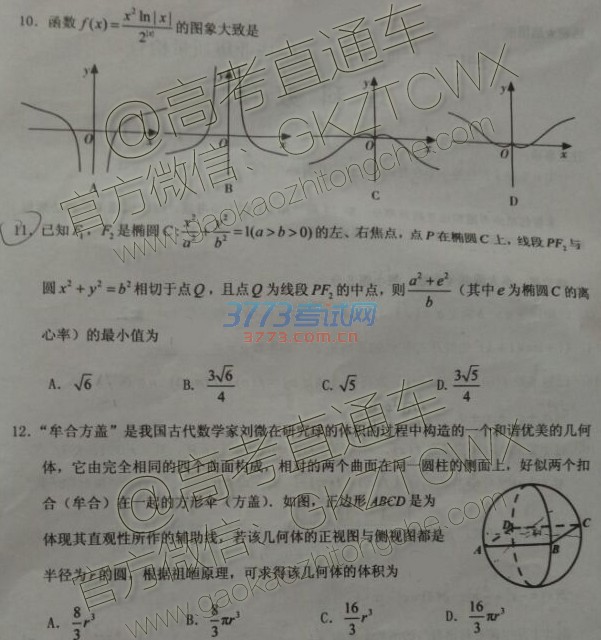 10. 函数 f(x)=x²ln|x|/2^|x| 的图象大致是
y y y y
O x O x O x O x
A B C D
11. 已知F₁，F₂是椭圆C: x²/a²+y²/b²=1(a>b>0)的左、右焦点，点P在椭圆C上，线段PF₂与
圆x²+y²=b²相切于点Q，且点Q为线段PF₂的中点，则(a²+e²)/b（其中e为椭圆C的离
心率）的最小值为
A. √6 B. 3√6/4 C. √5 D. 3√5/4
12. “牟合方盖”是我国古代数学家刘微在研究球的体积的过程中构造的一个和谐优美的几何
体，它由完全相同的四个曲面构成，相对的两个曲面在同一圆柱的侧面上，好似两个扣
合（牟合）在一起的方形伞（方盖）. 如图，正边形ABCD是为
体现其直观性所作的辅助线，若该几何体的正视图与侧视图都是
半径为r的圆，根据祖暅原理，可求得该几何体的体积为
A. 8/3 r³ B. 8/3 πr³ C. 16/3 r³ D. 16/3 πr³
D C
A B
@高考直通车
官方微信：GKZTCWX
www.gaokaozhitongche.com
3773考试网
3773.com.cn
@高考直通车
官方微信：GKZTCWX
www.gaokaozhitongche.com